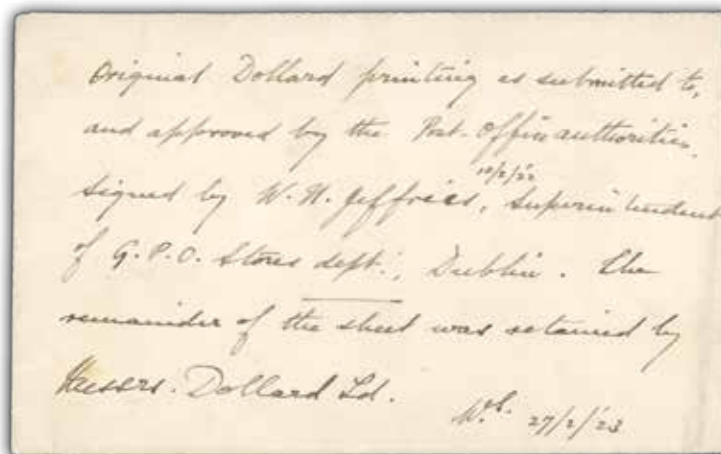 Original Dollard printing as submitted to,
and approved by the Post-Office authorities.
Signed by W. H. Jeffries, Superintendent
of G.P.O. Stores dept:, Dublin. The
remainder of the sheet was retained by
Messrs. Dollard Ld.
27/2/'23